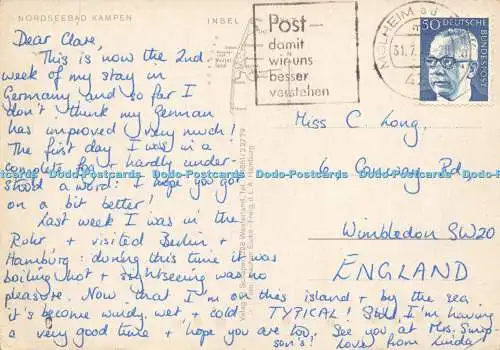 NORDSEEBAD KAMPEN
INSEL
Post-
damit
wir uns
besser
verstehen
MÜLHEIM a d
31.7.
50
DEUTSCHE
BUNDESPOST
Dear Clare,
This is now the 2nd
week of my stay in
Germany and so far I
don't think my German
has improved very much!
The first day I was in a
complete fog + hardly under-
stood a word: I hope you got
on a bit better!
Last week I was in the
Ruhr, + visited Berlin,
Hamburg: during this time it was
boiling hot + sightseeing was no
pleasure. Now that I'm on this island + by the sea
it's become windy, wet, + cold. TYPICAL! Still I'm having
a very good time + hope you are too. See you at Mrs. Simp-
son's! Love from Linda
Miss C Long,
6 Rd
Wimbledon SW20
ENGLAND
Dodo-Postcards Dodo-Postcards Dodo-Postcards Dodo-Postcards Dodo-Postcards